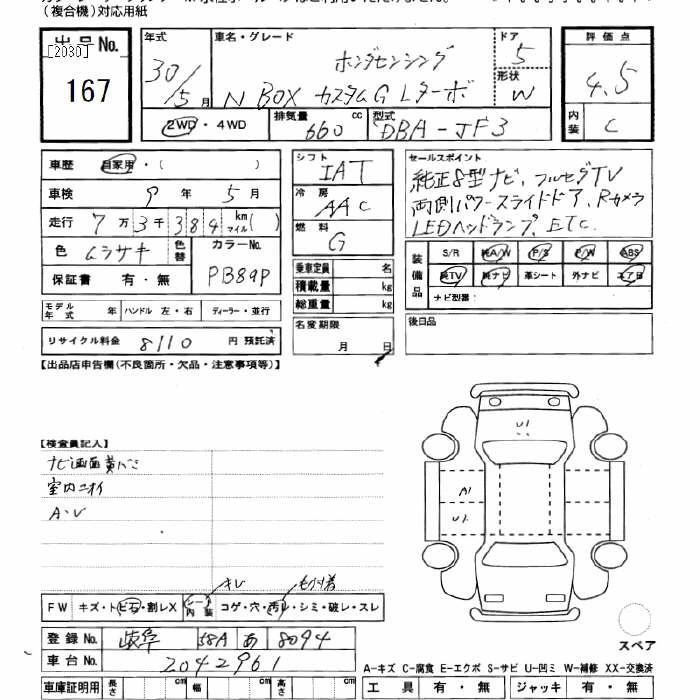 (複合機)対応用紙
出品No.
[2030]
167
年式
30/5月
車名・グレード
ホンダセンシング
N BOX カスタムG Lターボ
ドア
5
形状
W
2WD・4WD
排気量
660 cc
型式
DBA-JF3
評価点
4.5
内装
C
車歴 自家用・( )
車検 9年 5月
走行 7万3千384 km マイル( )
色 ムラサキ 色替
カラーNo.
PB89P
保証書 有・無
モデル年式 年 ハンドル 左・右 ディーラー・並行
リサイクル料金 8110 円 預託済
シフト
IAT
冷房
AAC
燃料
G
乗車定員 名
積載量 kg
総重量 kg
名変期限
月 日
セールスポイント
純正8型ナビ、フルセグTV
両側パワースライドドア、Rカメラ
LEDヘッドランプ、ETC.
装備品
S/R 純A/W P/S P/W ABS
純TV 純ナビ 革シート 外ナビ エアB
ナビ型番:
後日品
【出品店申告欄(不良箇所・欠品・注意事項等)】
【検査員記入】
室内ニオイ
A・U
U1
A1
U1
FW キズ・トビ石・割レX シート内装 コゲ・穴・汚レ・シミ・破レ・スレ
登録No. 岐阜 58A あ 8094
車台No. 2042961
車庫証明用 長さ cm 幅 cm 高さ cm
スペア
A-キズ C-腐食 E-エクボ S-サビ U-凹ミ W-補修 XX-交換済
工具 有・無 ジャッキ 有・無